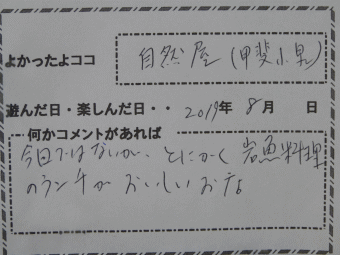 よかったよココ 自然屋(甲斐小泉)
遊んだ日・楽しんだ日・・ 2019年 8月 日
何かコメントがあれば
今日ではないが、とにかく岩魚料理
のランチがおいしいお店